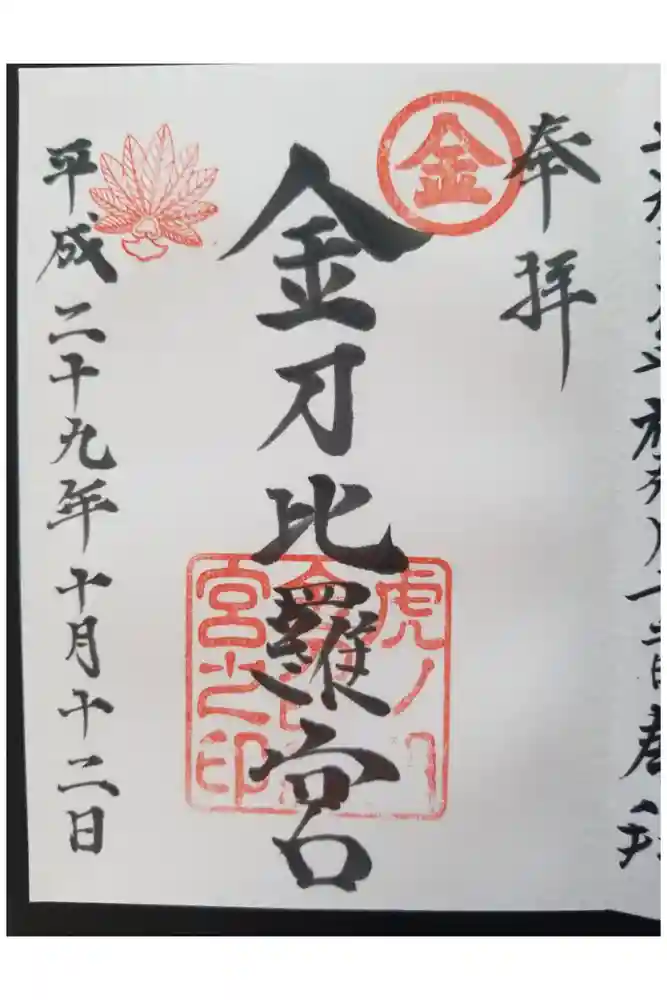 奉拝
金
金刀比羅宮
虎ノ門
金刀比羅
宮之印
平成二十九年十月十二日